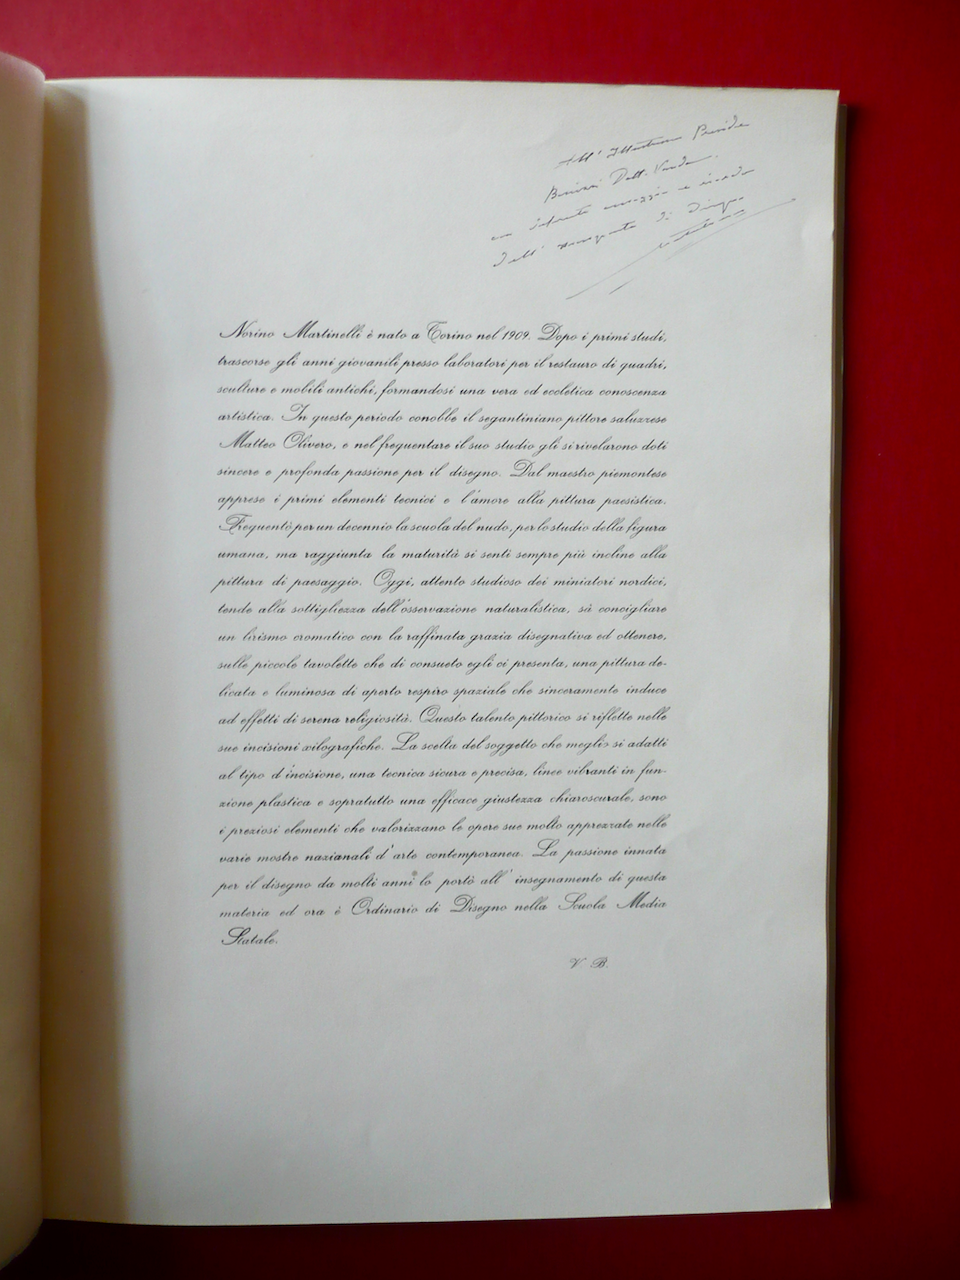 All' Illustrissimo Preside
Dott.
con
dell' insegnante di Disegno
Norino Martinelli è nato a Torino nel 1909. Dopo i primi studi,
trascorse gli anni giovanili presso laboratori per il restauro di quadri,
sculture e mobili antichi, formandosi una vera ed eccletica conoscenza
artistica. In questo periodo conobbe il segantiniano pittore saluzzese
Matteo Olivero, e nel frequentare il suo studio gli si rivelarono doti
sincere e profonda passione per il disegno. Dal maestro piemontese
apprese i primi elementi tecnici e l'amore alla pittura paesistica.
Frequentò per un decennio la scuola del nudo, per lo studio della figura
umana, ma raggiunta la maturità si sentì sempre più incline alla
pittura di paesaggio. Oggi, attento studioso dei miniatori nordici,
tende alla sottigliezza dell'osservazione naturalistica, sà concigliare
un lirismo cromatico con la raffinata grazia disegnativa ed ottenere,
sulle piccole tavolette che di consueto egli ci presenta, una pittura de-
licata e luminosa di aperto respiro spaziale che sinceramente induce
ad effetti di serena religiosità. Questo talento pittorico si riflette nelle
sue incisioni xilografiche. La scelta del soggetto che meglio si adatti
al tipo d'incisione, una tecnica sicura e precisa, linee vibranti in fun-
zione plastica e sopratutto una efficace giustezza chiaroscurale, sono
i preziosi elementi che valorizzano le opere sue molto apprezzate nelle
varie mostre nazianali d'arte contemporanea. La passione innata
per il disegno da molti anni lo portò all' insegnamento di questa
materia ed ora è Ordinario di Disegno nella Scuola Media
Statale.
V. B.